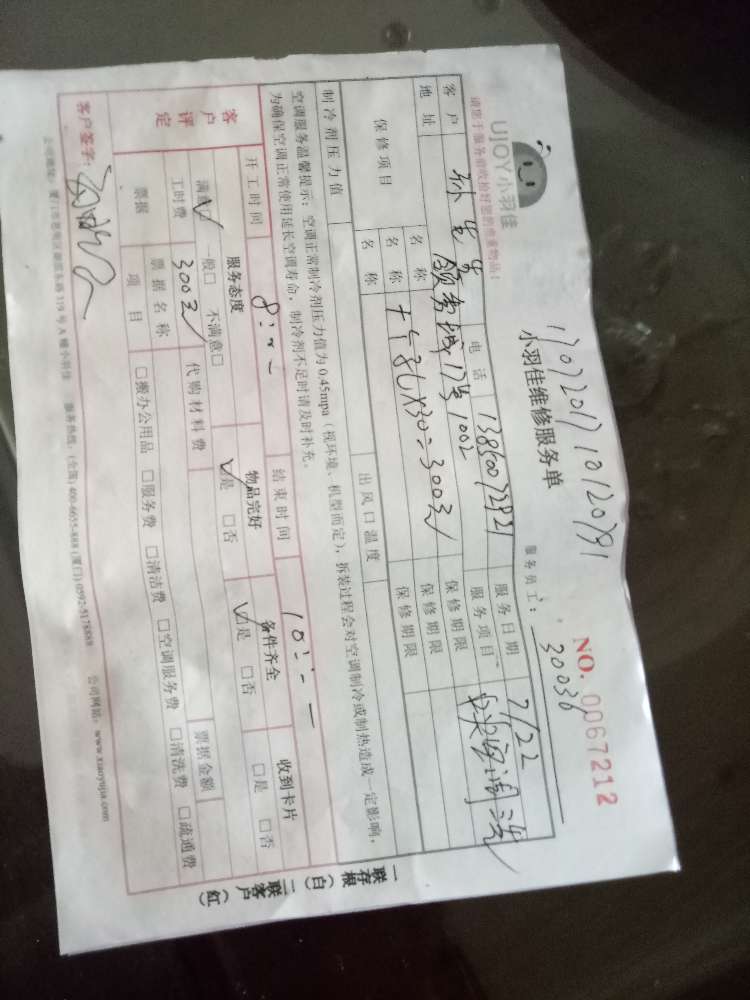 UJOY小羽佳
请您于服务前收拾好您的贵重物品！
1707201710120791
小羽佳维修服务单
NO. 0067212
服务员工： 30036
客户 孙先生 电话 13850072921 服务日期 7/22
地址 17号1002 服务项目
保修项目 名称 十个孔×30=300元 保修期限
名称 保修期限
名称 保修期限
制冷剂压力值 出风口温度
空调服务温馨提示：空调正常制冷剂压力值为0.45mpa（视环境、机型而定），拆装过程会对空调制冷或制热造成一定影响，
为确保空调正常使用延长空调寿命，制冷剂不足时请及时补充。
开工时间 8:-- 结束时间 10:--
客户评定 服务态度 物品完好 备件齐全 收到卡片
满意☑ 一般□ 不满意□ ☑是 □否 ☑是 □否 □是 □否
工时费 300元 代购材料费 票据金额
票据 票据名称
项目 □搬办公用品 □服务费 □清洁费 □空调服务费 □清洗费 □疏通费
客户签字：
服务热线：(全国) 400-6655-888 (厦门) 0592-5178888 公司网站：www.xiaoyujia.com
一联存根（白） 二联客户（红）